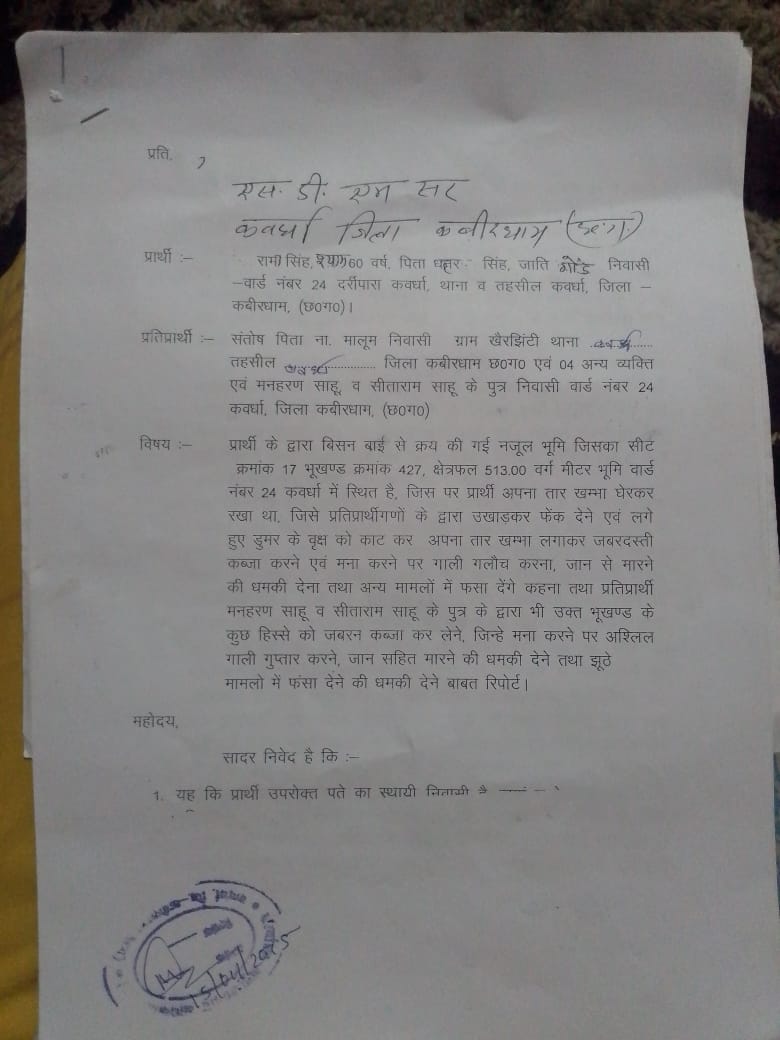 प्रति,
एस. डी. एम सर
कवर्धा जिला कबीरधाम (छ.ग.)
प्रार्थी :– रामी सिंह, 60 वर्ष, पिता सिंह, जाति गोंड निवासी
–वार्ड नंबर 24 दर्रीपारा कवर्धा, थाना व तहसील कवर्धा, जिला –
कबीरधाम, (छ0ग0)।
प्रतिप्रार्थी :– संतोष पिता ना. मालूम निवासी ग्राम खैरझिंटी थाना कवर्धा
तहसील कवर्धा जिला कबीरधाम छ0ग0 एवं 04 अन्य व्यक्ति
एवं मनहरण साहू, व सीताराम साहू के पुत्र निवासी वार्ड नंबर 24
कवर्धा, जिला कबीरधाम, (छ0ग0)
विषय :– प्रार्थी के द्वारा बिसन बाई से क्रय की गई नजूल भूमि जिसका सीट
क्रमांक 17 भूखण्ड क्रमांक 427, क्षेत्रफल 513.00 वर्ग मीटर भूमि वार्ड
नंबर 24 कवर्धा में स्थित है, जिस पर प्रार्थी अपना तार खम्भा घेरकर
रखा था, जिसे प्रतिप्रार्थीगणों के द्वारा उखाड़कर फेंक देने एवं लगे
हुए डुमर के वृक्ष को काट कर अपना तार खम्भा लगाकर जबरदस्ती
कब्जा करने एवं मना करने पर गाली गलौच करना, जान से मारने
की धमकी देना तथा अन्य मामलों में फसा देंगे कहना तथा प्रतिप्रार्थी
मनहरण साहू व सीताराम साहू के पुत्र के द्वारा भी उक्त भूखण्ड के
कुछ हिस्से को जबरन कब्जा कर लेने, जिन्हे मना करने पर अश्लिल
गाली गुप्तार करने, जान सहित मारने की धमकी देने तथा झूठे
मामलो में फंसा देने की धमकी देने बाबत रिपोर्ट।
महोदय,
सादर निवेद है कि :–
1. यह कि प्रार्थी उपरोक्त पते का स्थायी निवासी है
15/04/2025